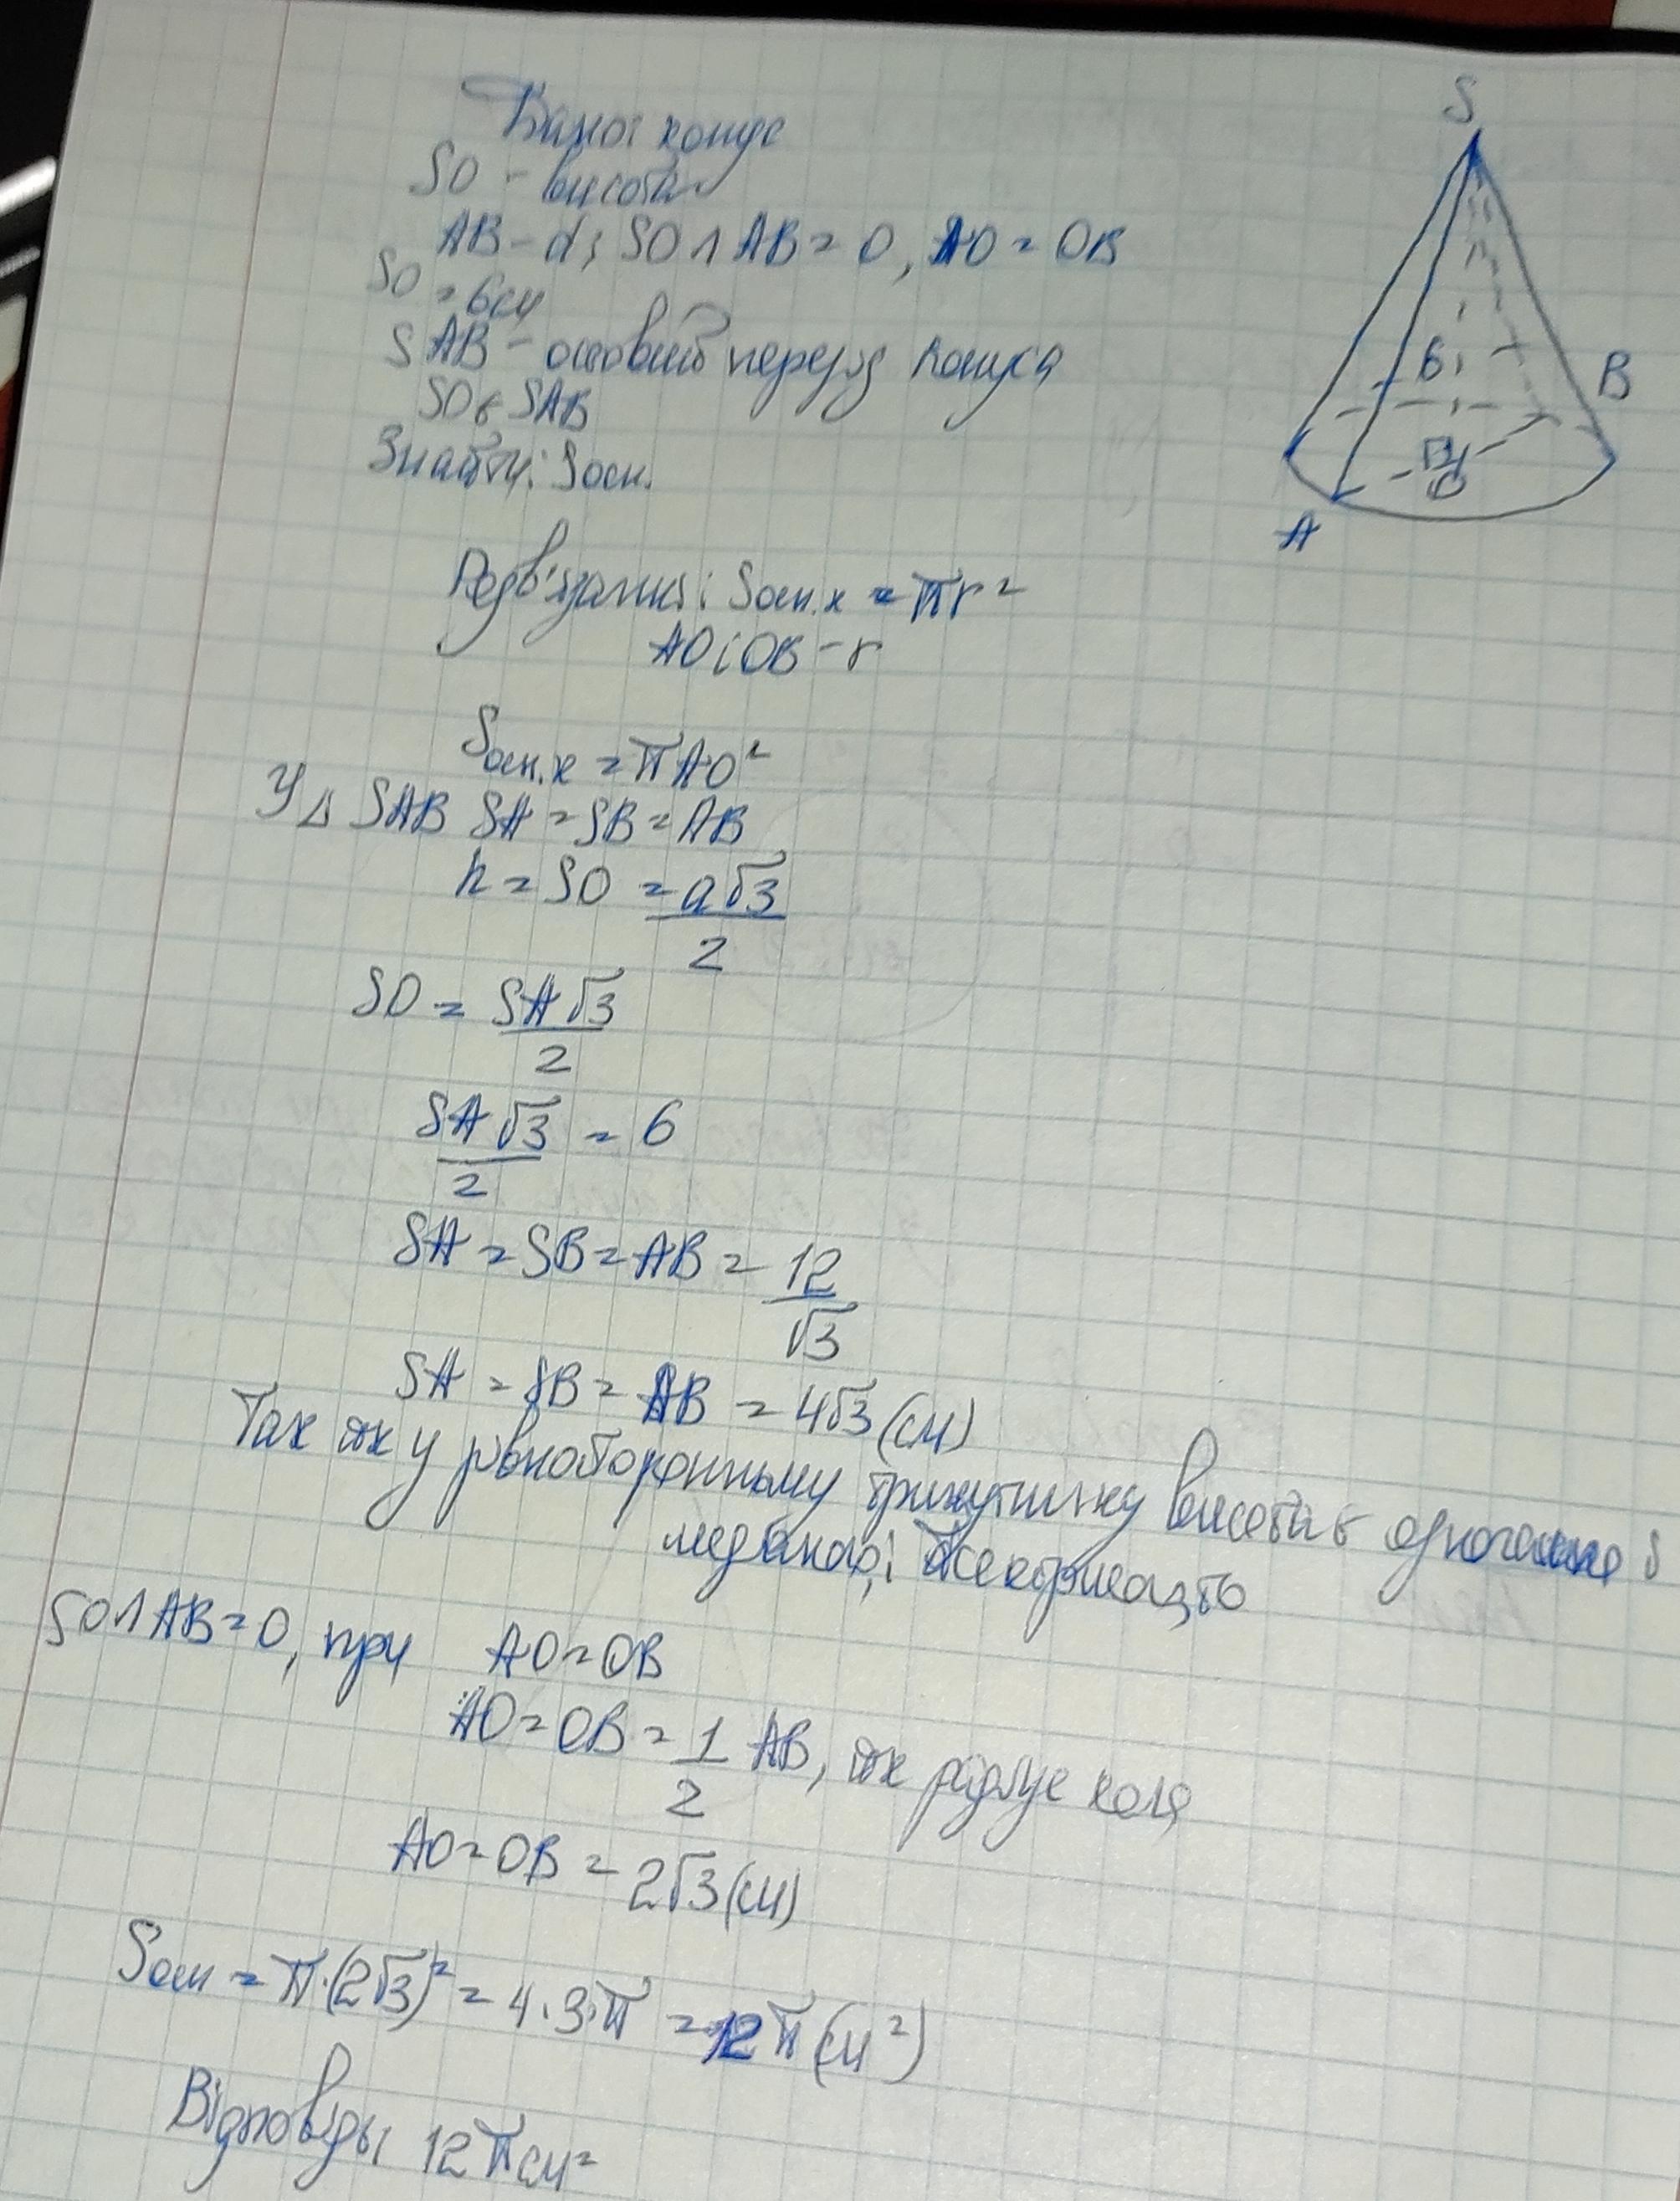 Дано: конус
SO - висота
AB - d; SO ∩ AB = O, AO = OB
SO = 6см
SAB - осьовий переріз конуса
SO є SAB
Знайти: Sосн.
S
6
B
O
A
Розв'язання: Sосн.к = πr²
AO і OB - r
Sосн.к = πAO²
У △ SAB SA = SB = AB
h = SO = a√3/2
SO = SA√3/2
SA√3/2 = 6
SA = SB = AB = 12/√3
SA = SB = AB = 4√3 (см)
Так як у рівносторонньому трикутнику висота є одночасно і
медіаною, і бісектрисою
SO ∩ AB = O, при AO = OB
AO = OB = 1/2 AB, як радіус кола
AO = OB = 2√3 (см)
Sосн = π·(2√3)² = 4·3·π = 12π (см²)
Відповідь 12π см²